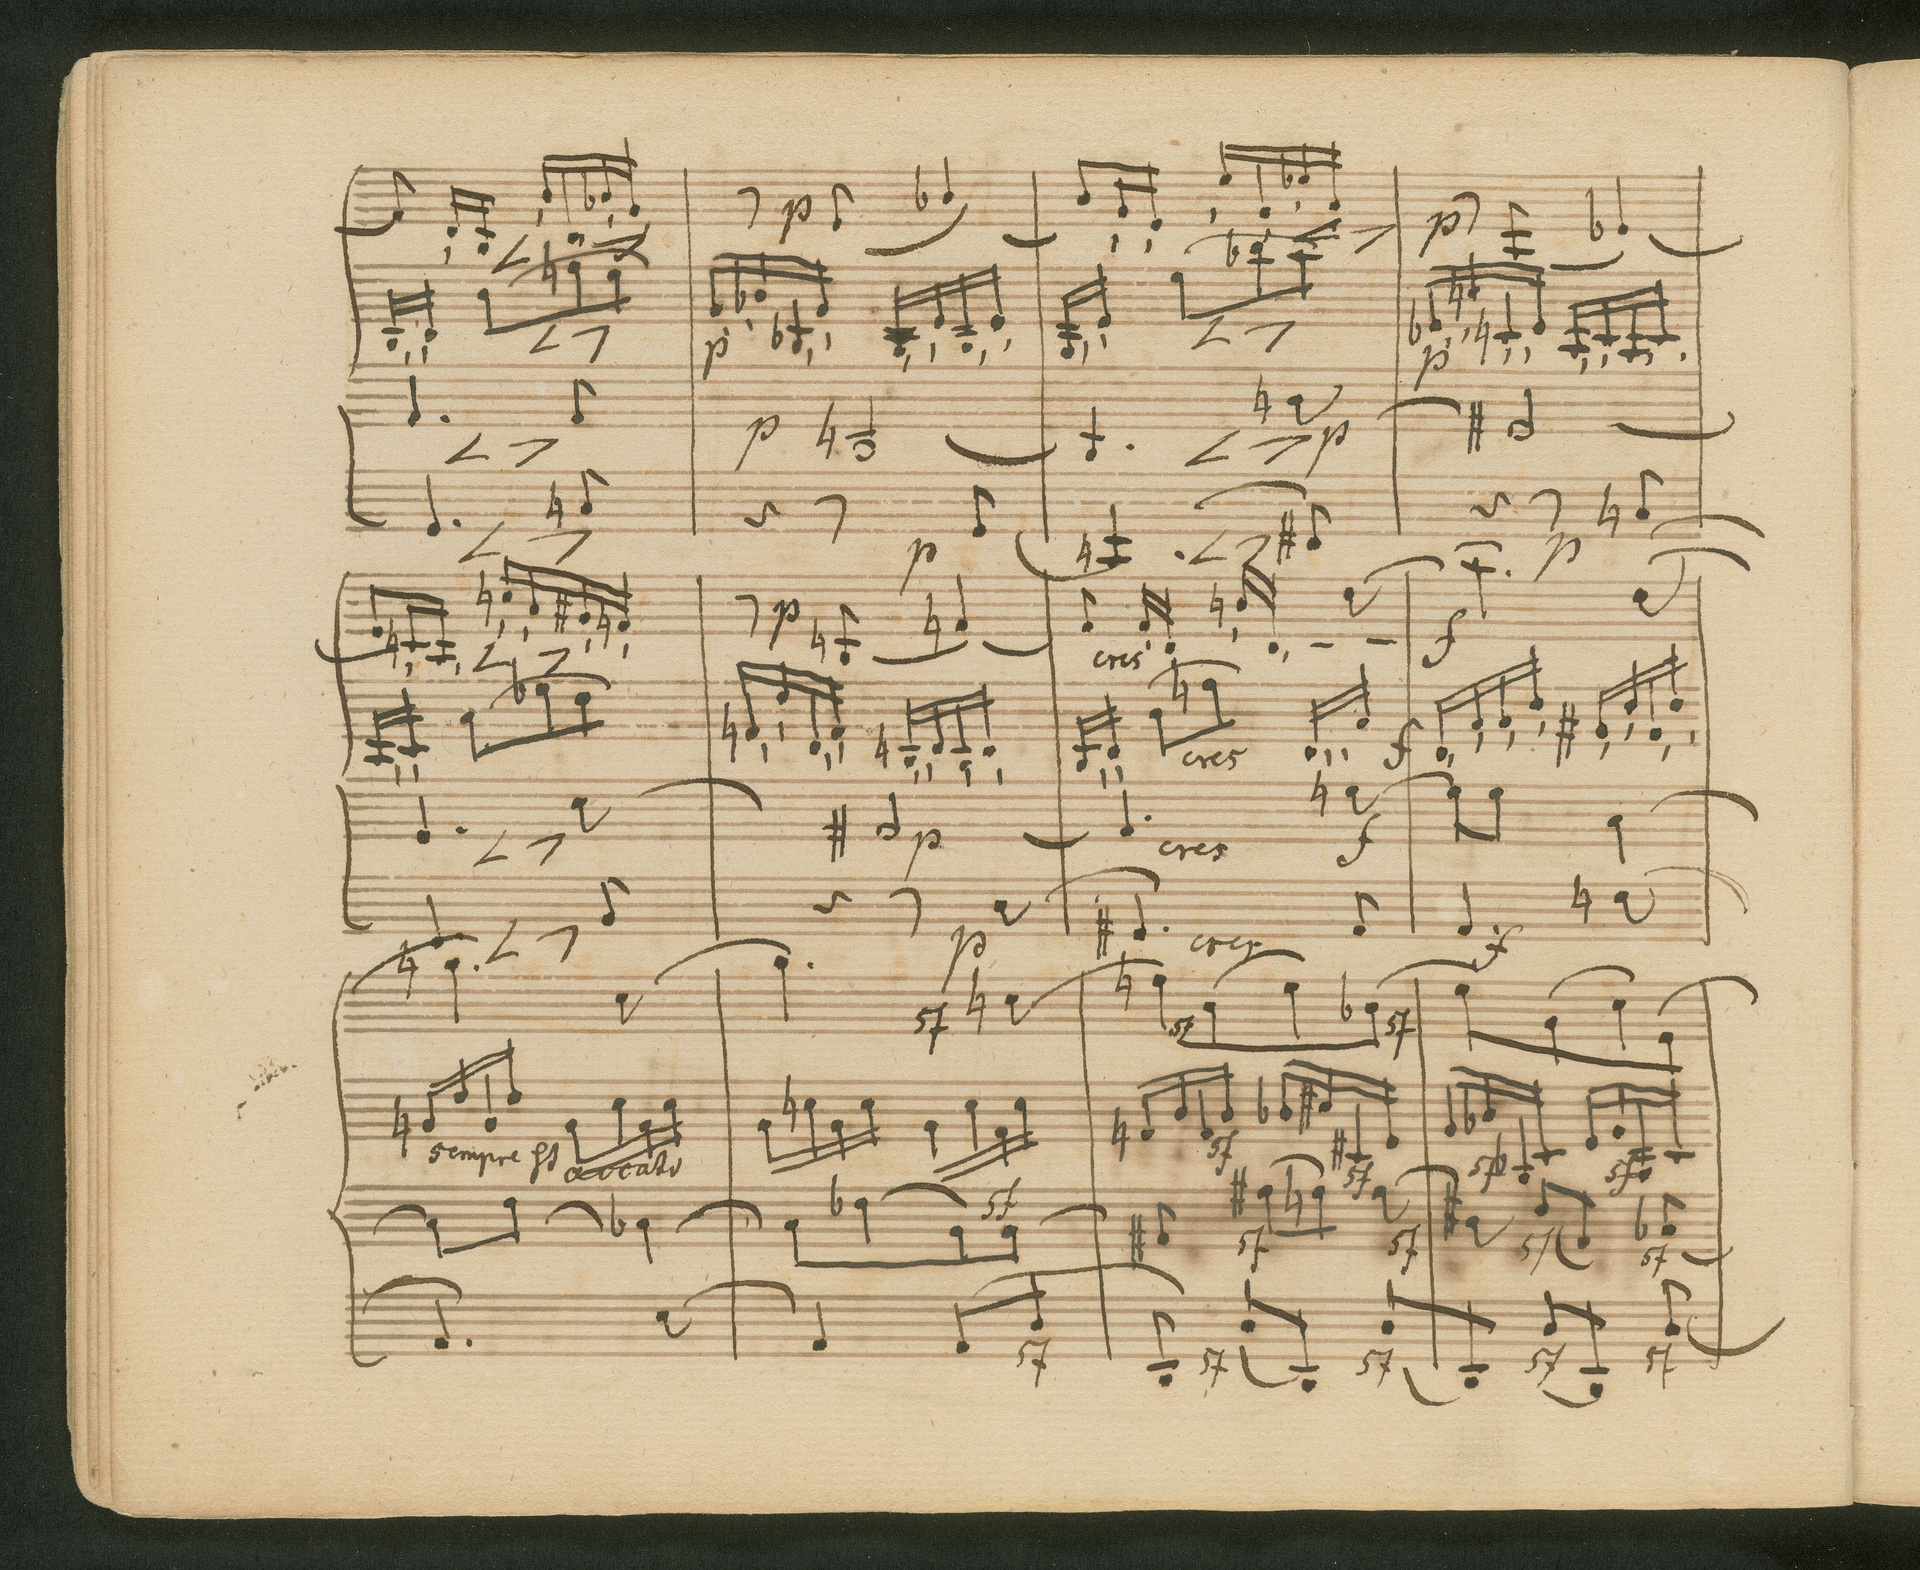 p
p
p
p
p
p
p
p
p
cres
f
cres
f
p
cres
f
p
cres
f
sf
sf
sf
sempre staccato
sf
sf
sf
sf
sf
sf
sf
sf
sf
sf
sf
sf
sf
sf